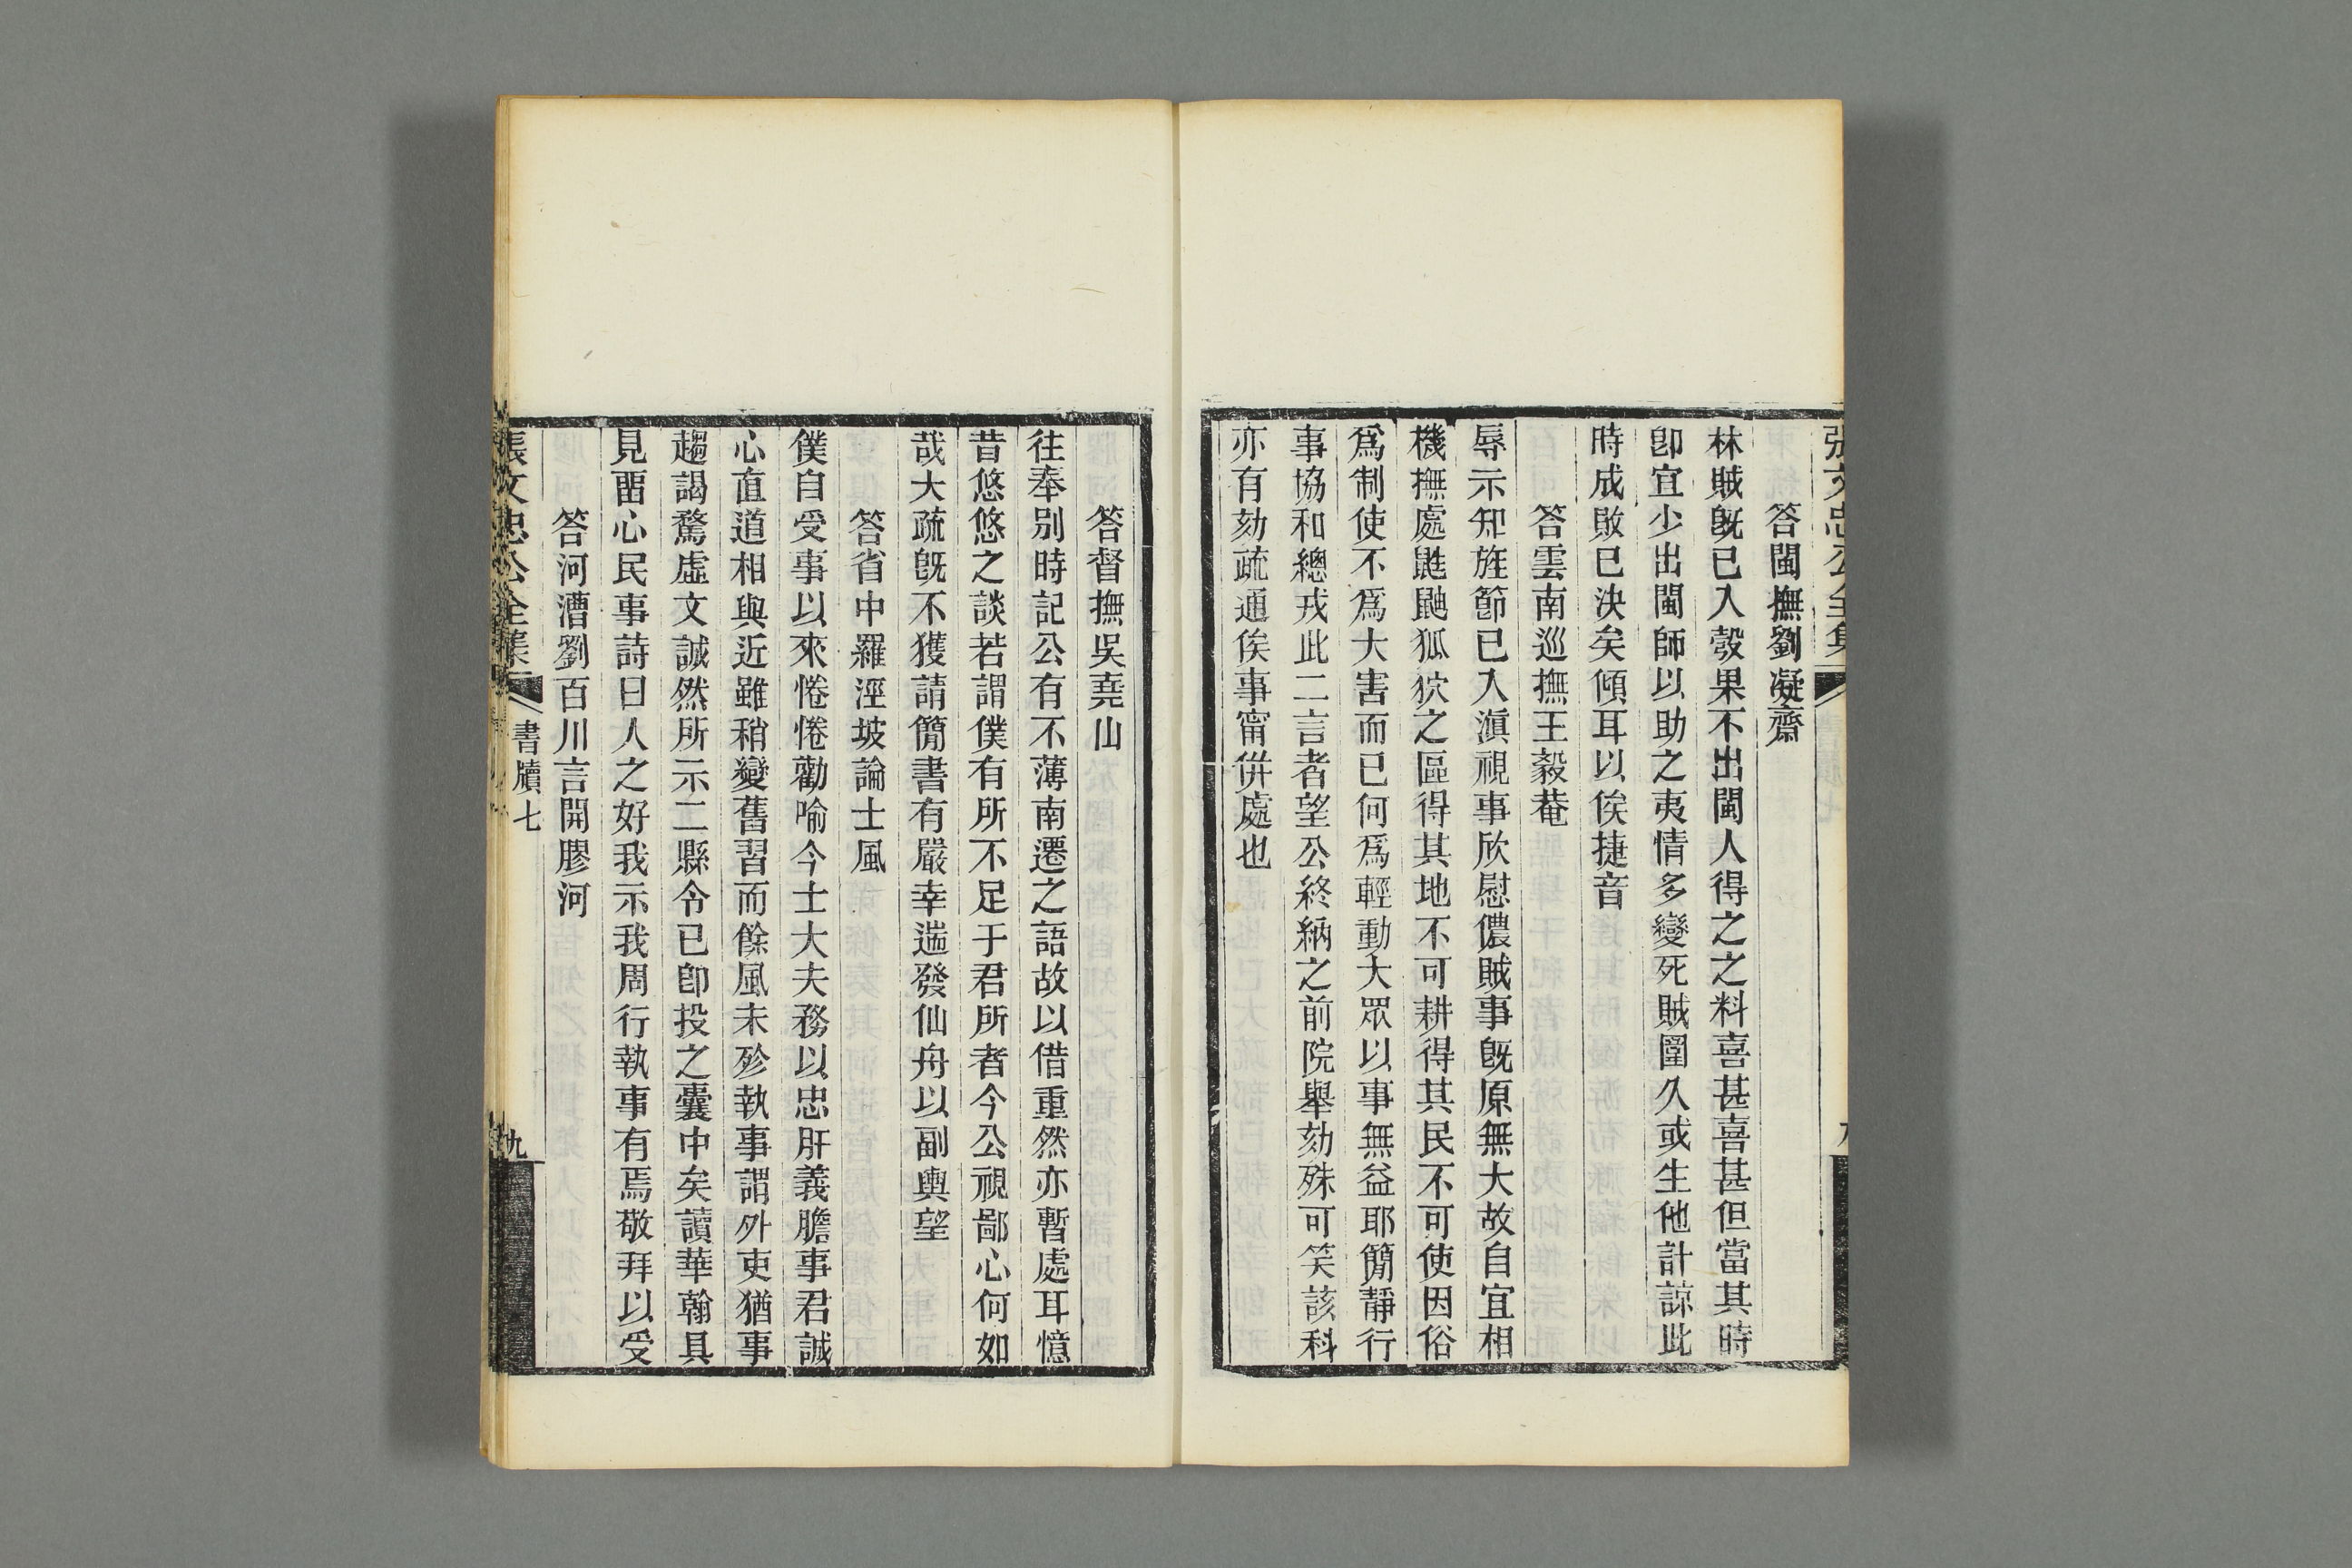 答閩撫劉凝齋
林賊旣已入彀果不出閩人得之之料喜甚喜甚但當其時
卽宜少出閩師以助之夷情多變死賊圍久或生他計諒此
時成敗已決矣傾耳以俟捷音
答雲南巡撫王毅菴
辱示知旌節已入滇視事欣慰儂賊事旣原無大故自宜相
機撫處鼪鼬狐狖之區得其地不可耕得其民不可使因俗
爲制使不爲大害而已何爲輕動大眾以事無益耶簡靜行
事協和總戎此二言者望公終納之前院舉劾殊可笑該科
亦有劾疏通俟事甯併處也
答督撫吳堯山
往奉別時記公有不薄南遷之語故以借重然亦暫處耳憶
昔悠悠之談若謂僕有所不足于君所者今公視鄙心何如
哉大疏旣不獲請簡書有嚴幸遄發仙舟以副輿望
答省中羅涇坡論士風
僕自受事以來惓惓勸喻今士大夫務以忠肝義膽事君誠
心直道相與近雖稍變舊習而餘風未殄執事謂外吏猶事
趨謁騖虛文誠然所示二縣令已卽投之囊中矣讀華翰具
見畱心民事詩曰人之好我示我周行執事有焉敬拜以受
答河漕劉百川言開膠河
張文忠公全集
書牘七
九